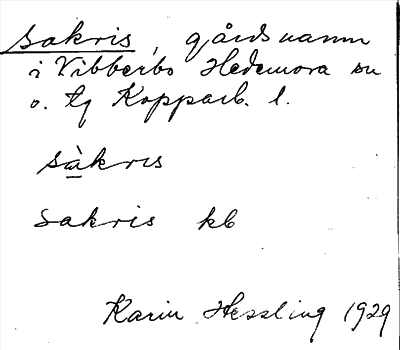 Sakris, gårdsnamn
i Vibberbo Hedemora sn
o. tg Kopparb. l.
sàkrıs
Sakris kb
Karin Hessling 1929